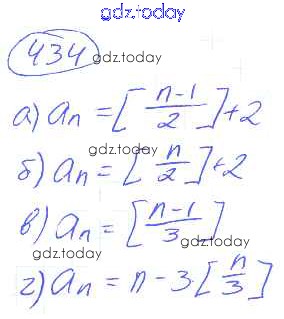 gdz.today
434 gdz.today
а) aₙ = [n-1/2] + 2
gdz.today
б) aₙ = [n/2] + 2
в) aₙ = [n-1/3]
gdz.today
г) aₙ = n - 3 · [n/3]